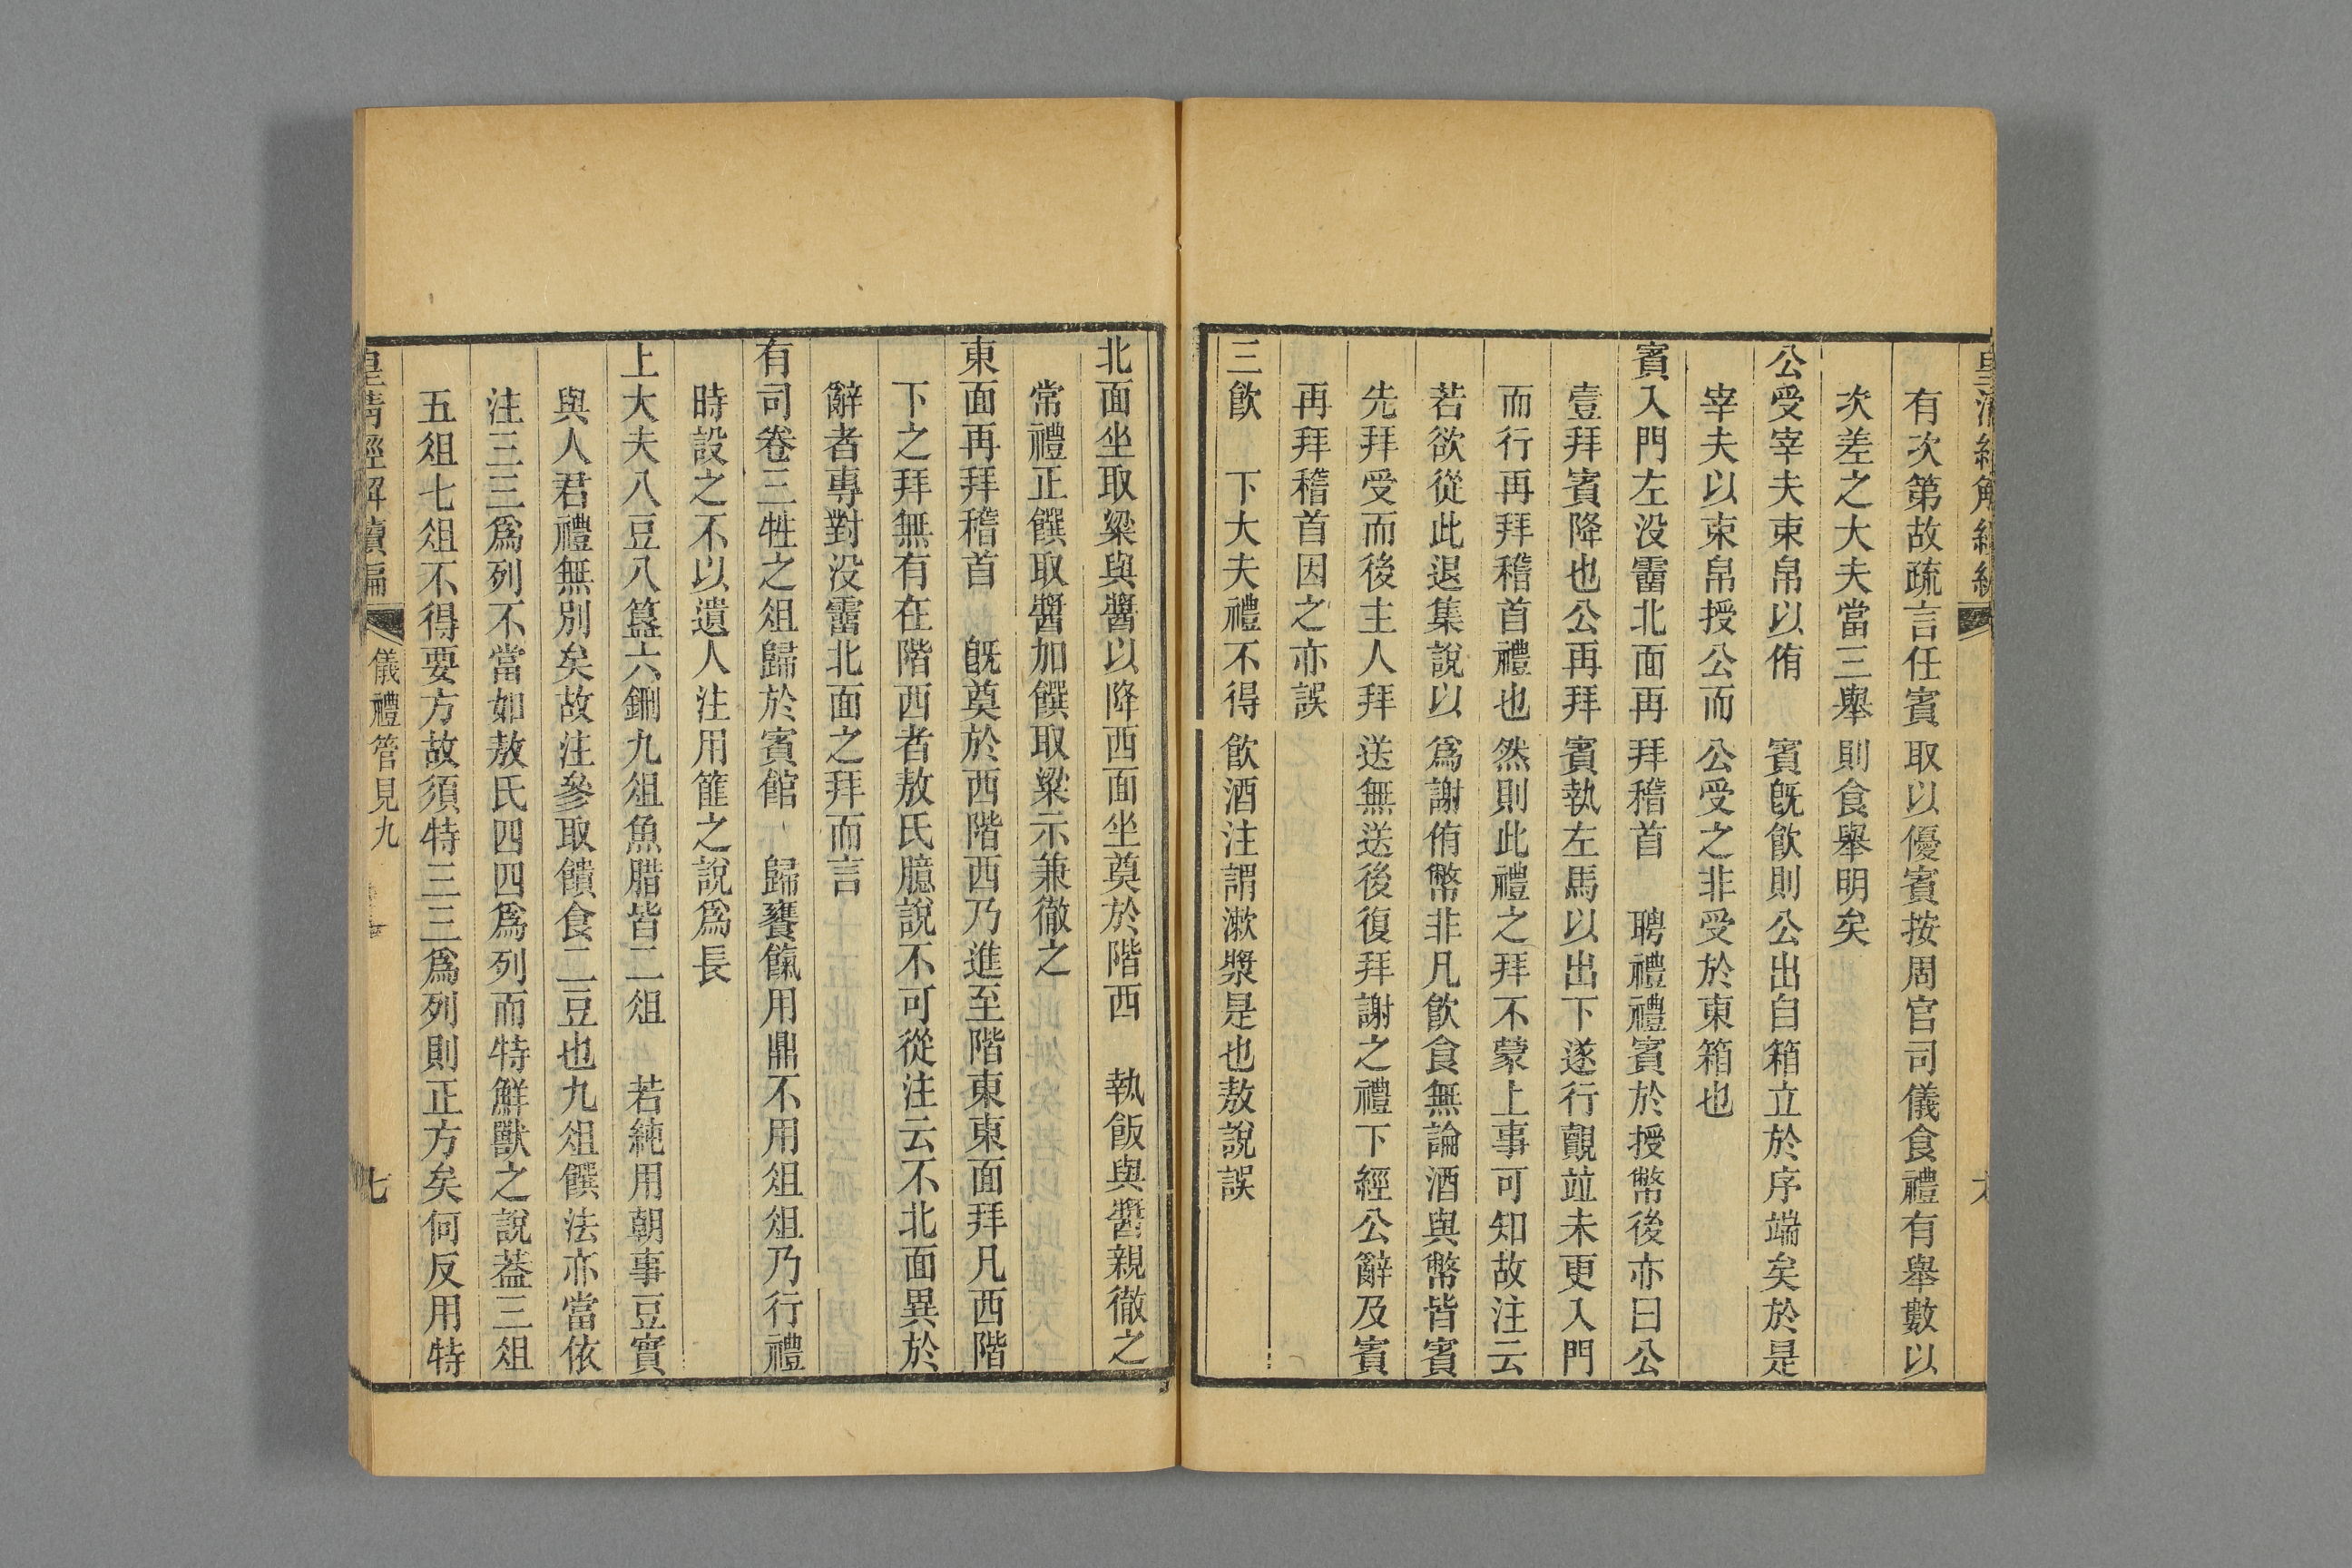 有次第故疏言任賓取以優賓按周官司儀食禮有舉數以
次差之大夫當三舉則食舉明矣
公受宰夫束帛以侑　賓旣飮則公出自箱立於序端矣於是
宰夫以束帛授公而公受之非受於東箱也
賓入門左没霤北面再拜稽首　聘禮禮賓於授幣後亦曰公
壹拜賓降也公再拜賓執左馬以出下遂行覿竝未更入門
而行再拜稽首禮也然則此禮之拜不蒙上事可知故注云
若欲從此退集說以爲謝侑幣非凡飮食無論酒與幣皆賓
先拜受而後主人拜送無送後復拜謝之禮下經公辭及賓
再拜稽首因之亦誤
三飮　下大夫禮不得飮酒注謂漱漿是也敖說誤
北面坐取粱與醬以降西面坐奠於階西　執飯與醬親徹之
常禮正饌取醬加饌取粱示兼徹之
東面再拜稽首　旣奠於西階西乃進至階東東面拜凡西階
下之拜無有在階西者敖氏臆說不可從注云不北面異於
辭者專對没霤北面之拜而言
有司卷三牲之俎歸於賓館　歸饔餼用鼎不用俎俎乃行禮
時設之不以遺人注用篚之說爲長
上大夫八豆八簋六鉶九俎魚腊皆二俎　若純用朝事豆實
與人君禮無別矣故注參取饋食二豆也九俎饌法亦當依
注三三爲列不當如敖氏四四爲列而特鮮獸之說葢三俎
五俎七俎不得要方故須特三三爲列則正方矣何反用特
皇清經解續編　儀禮管見九　七